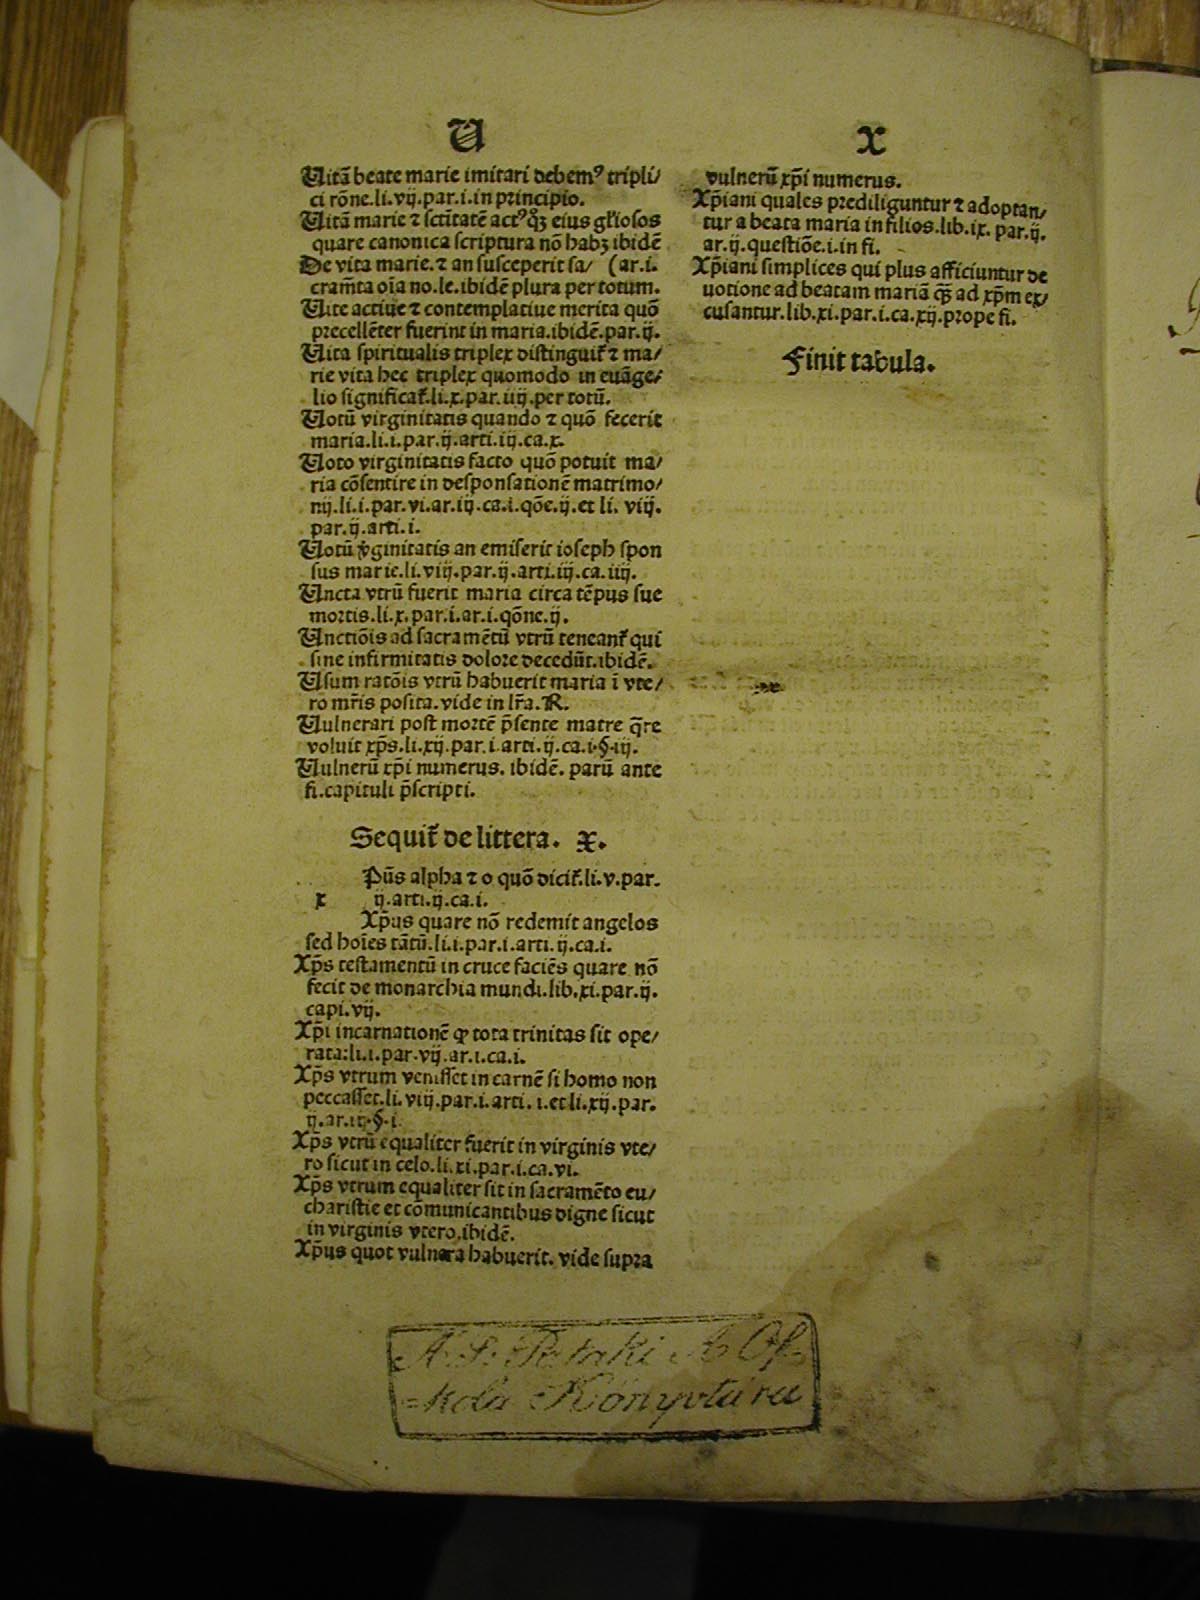 U
Uitā beate marie imitari debemꝰ tripli/
ci rōne.li.vij.par.i.in principio.
Uitā marie ⁊ sctītatē actꝰqꝫ eius gl'iosos
quare canonica scriptura nō habꝫ ibidē
De vita marie.⁊ an susceperit sa/ (ar.i.
cramēta oīa no.le.ibidē plura per totum.
Uite actiue ⁊ contemplatiue merita quō
precellēter fuerint in maria.ibidē.par.ij.
Uita spiritualis triplex distinguit̄ ⁊ ma/
rie vita hec triplex quomodo in euāge/
lio significat̄.li.x.par.iiij.per totū.
Uotū virginitatis quando ⁊ quō fecerit
maria.li.i.par.ij.arti.iij.ca.x.
Uoto virginitatis facto quō potuit ma/
ria cōsentire in desponsationē matrimo/
nij.li.i.par.vi.ar.iij.ca.i.qōe.ij.et li. viij.
par.ij.arti.i.
Uotū v̄ginitatis an emiserit ioseph spon
sus marie.li.viij.par.ij.arti.iij.ca.iiij.
Uncta vtrū fuerit maria circa tēpus sue
mortis.li.x.par.i.ar.i.qōne.ij.
Unctiōis ad sacramētū vtrū teneant̄ qui
sine infirmitatis dolore decedūt.ibidē.
Usum ratōis vtrū habuerit maria ī vte/
ro mr̄is posita.vide in lr̄a.R.
Uulnerari post mortē p̄sente matre q̄re
voluit xp̄s.li.xij.par.i.arti.ij.ca.i.§.iij.
Uulnerū xp̄i numerus. ibidē. parū ante
fi.capituli p̄scripti.
Sequit̄ de littera. X.
x
Pūs alpha ⁊ o quō dicit̄.li.v.par.
ij.arti.ij.ca.i.
Xp̄us quare nō redemit angelos
sed hoīes tātū.li.i.par.i.arti.ij.ca.i.
Xp̄s testamentū in cruce faciēs quare nō
fecit de monarchia mundi.lib.xi.par.ij.
capi.vij.
Xp̄i incarnationē ꝙ tota trinitas sit ope/
rata:li.i.par.vij.ar.i.ca.i.
Xp̄s vtrum venisset in carnē si homo non
peccasset.li.viij.par.i.arti. i.et li.xij.par.
ij.ar.ii.§.i.
Xp̄s vtrū equaliter fuerit in virginis vte/
ro sicut in celo.li.xi.par.i.ca.vi.
Xp̄s vtrum equaliter sit in sacramēto eu/
charistie et cōmunicantibus digne sicut
in virginis vtero.ibidē.
Xp̄us quot vulnera habuerit. vide supra
X
vulnerū xp̄i numerus.
Xp̄iani quales prediliguntur ⁊ adoptan/
tur a beata maria in filios.lib.ix. par.ij.
ar.ij.questiōe.i.in fi.
Xp̄iani simplices qui plus afficiuntur de
uotione ad beatam mariā q̄ꝫ ad xp̄m ex/
cusantur.lib.xi.par.i.ca.xij.prope fi.
Finit tabula.
A. S. Pataki A Os-
=kola Könyvtára